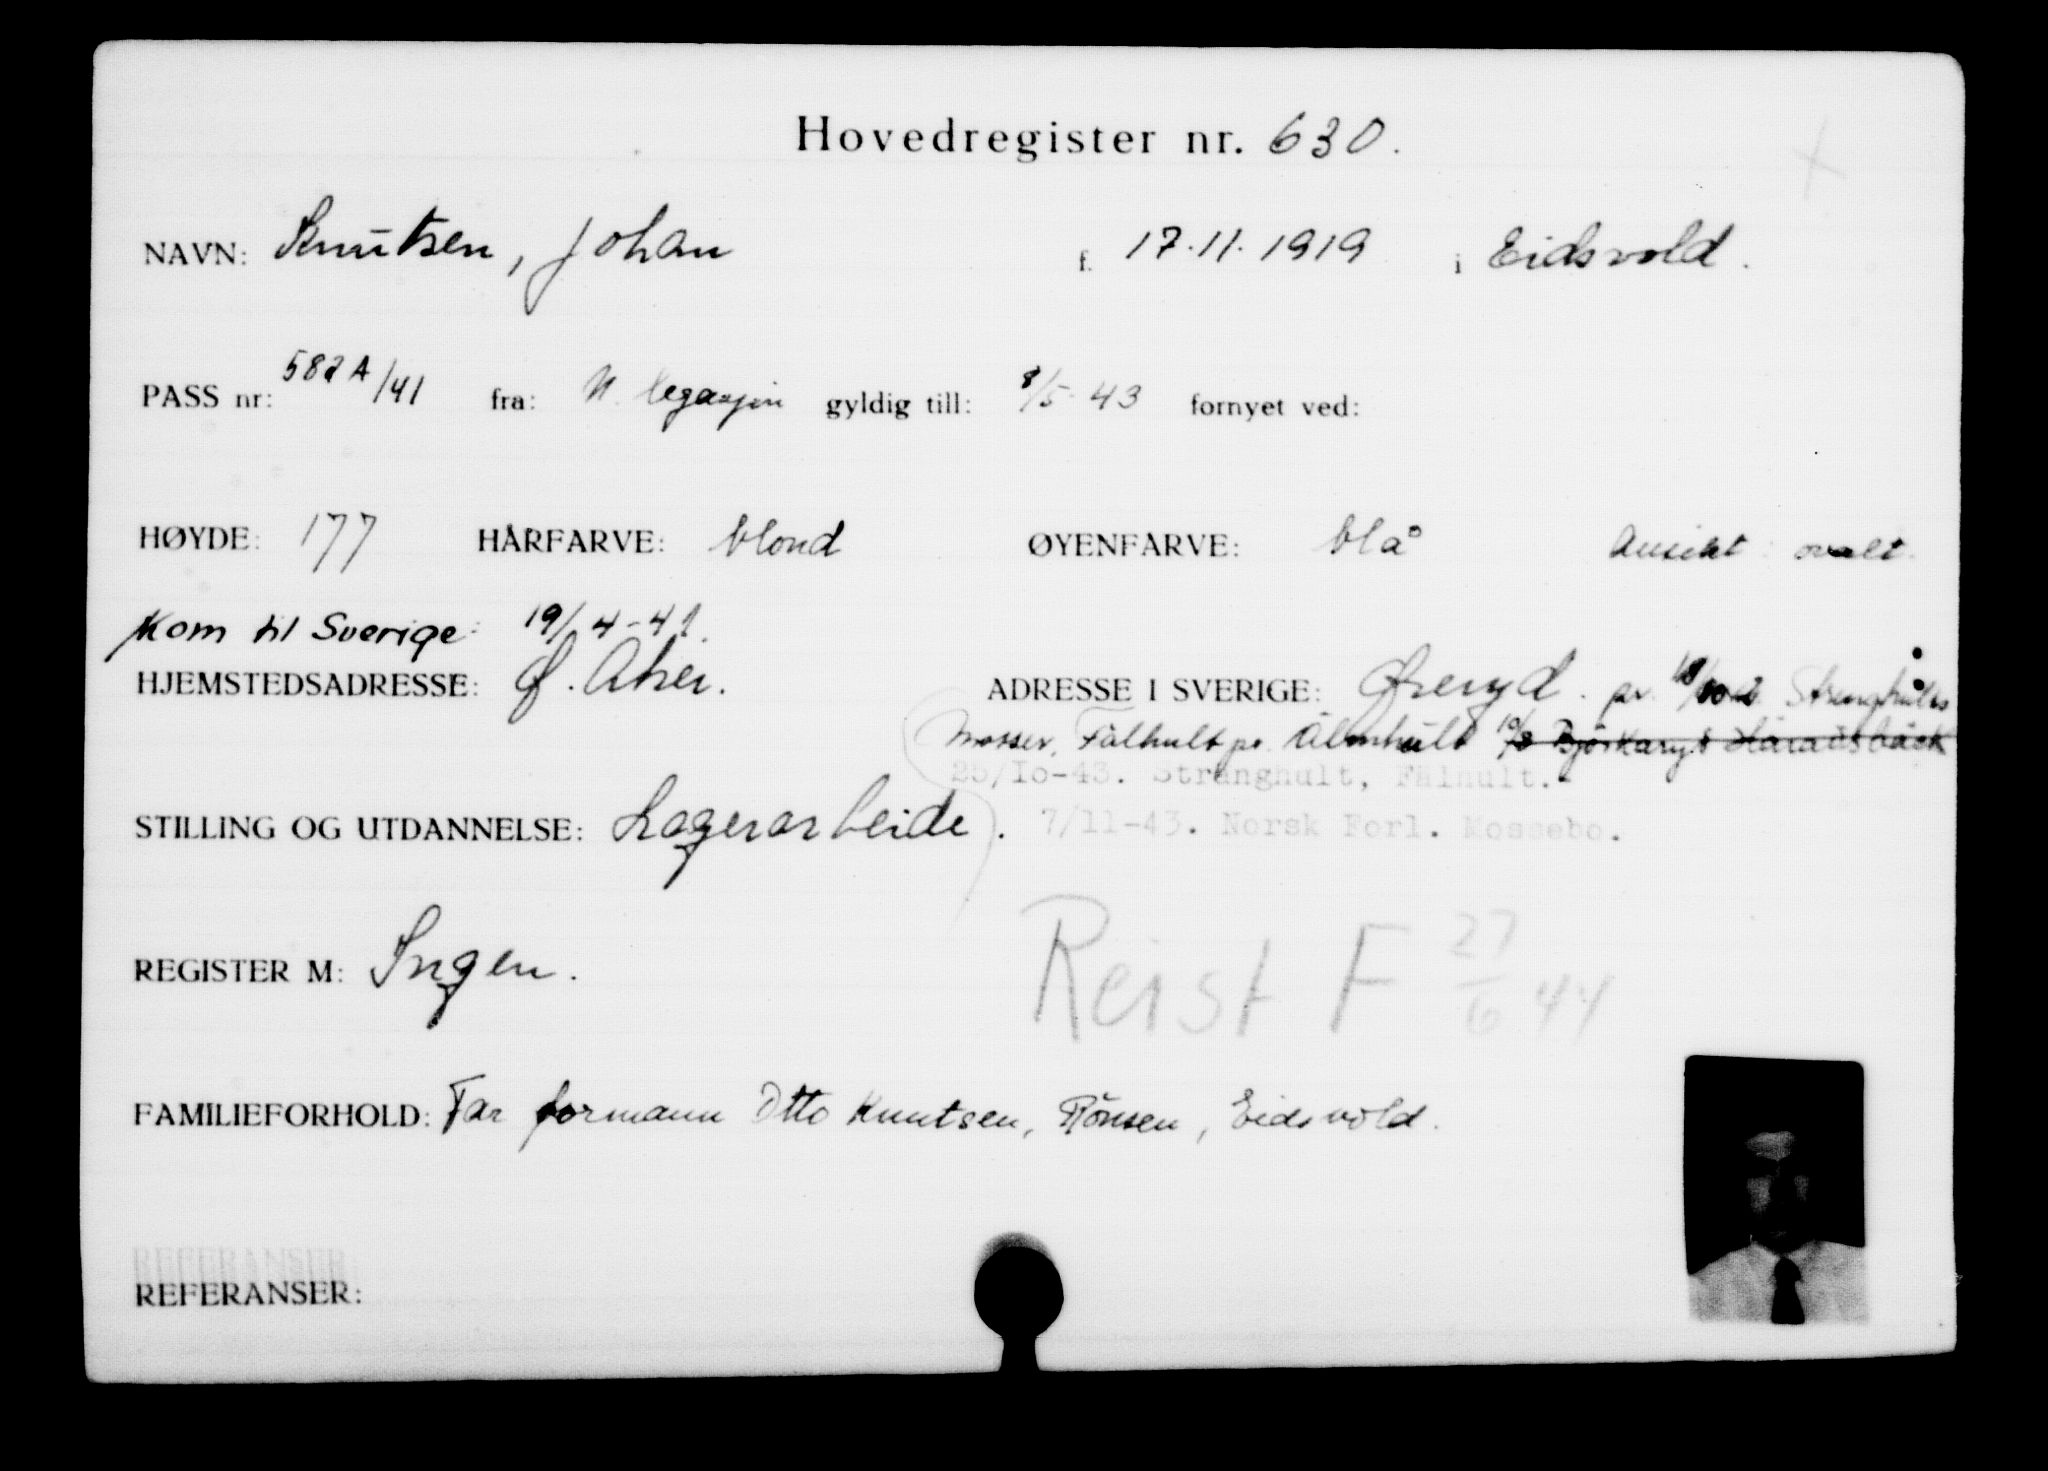 Hovedregister nr. 630.
NAVN: Knutsen, Johan f. 17.11.1919 i Eidsvold.
PASS nr: 582A/41 fra: N. legasjon gyldig till: 8/5-43 fornyet ved:
HØYDE: 177 HÅRFARVE: blond ØYENFARVE: blå Ansikt: ovalt.
Kom til Sverige: 19/4-41.
HJEMSTEDSADRESSE: Ø. Aker. ADRESSE I SVERIGE: Øreryd. pr. 18/10 Stranghults
Mosser, Fälhult pr. Älmhult 10/8 Björkaryd Häradsbäck
25/10-43. Stranghult, Fälhult.
STILLING OG UTDANNELSE: Lagerarbeide. 7/11-43. Norsk Forl. Mossebo.
REGISTER M: Ingen.
Reist F 27/6 44
FAMILIEFORHOLD: Far formann Otto Knutsen, Rönsen, Eidsvold.
REFERANSER: